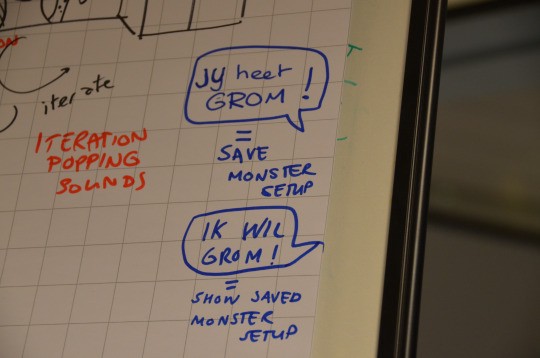 iterate
ITERATION
POPPING
SOUNDS
Jy heet
GROM!
=
SAVE
MONSTER
SETUP
IK WIL
GROM!
=
SHOW SAVED
MONSTER
SETUP